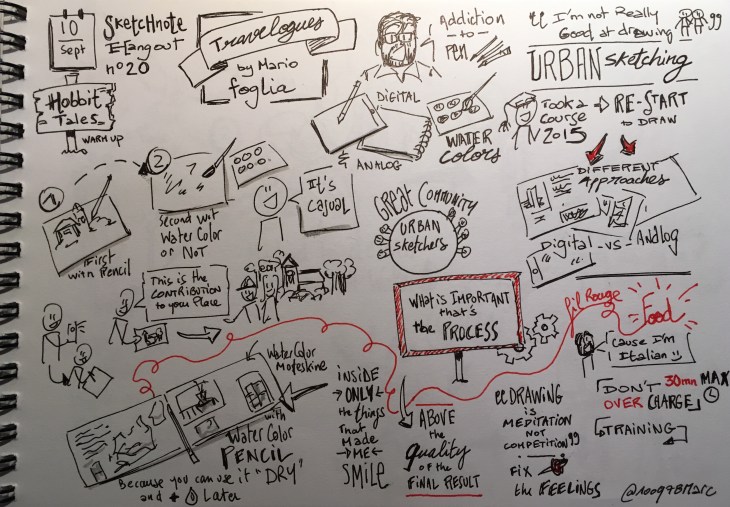 10
Sept
SKetcHnote
HangOut
nº20
Hobbit
Tales
WARM UP
Travelogues
by Mario
foglia
Addiction
to
PEN
"I'm not Really
Good at drawing"
URBAN sketching
DIGITAL
&
ANALOG
WATER
Colors
Took a
Course
2015
RE-START
to DRAW
DIFFERENT
Approaches
Digital -vs- Analog
1
First
with Pencil
2
Second wit
WaterColor
or Not
It's
Casual
GREAT COMMUNITY
URBAN
sketchers
This is the
CONTRIBUTION
to your Place
What is Important
that's
the PROCESS
fil Rouge
Food
Cause I'm
Italian
DON'T 30mn MAX
OVER CHARGE
TRAINING
WaterColor
Moleskine
with
WaterColor
PENCIL
Because you can use it "DRY"
and + Later
INSIDE
ONLY
the things
That
made
ME
SMILE
ABOVE
the
Quality
OF the
FINAL RESULT
"DRAWING
is
MEDITATION
NOT
COMPETITION"
FIX
the FEELINGS
@100978Marc